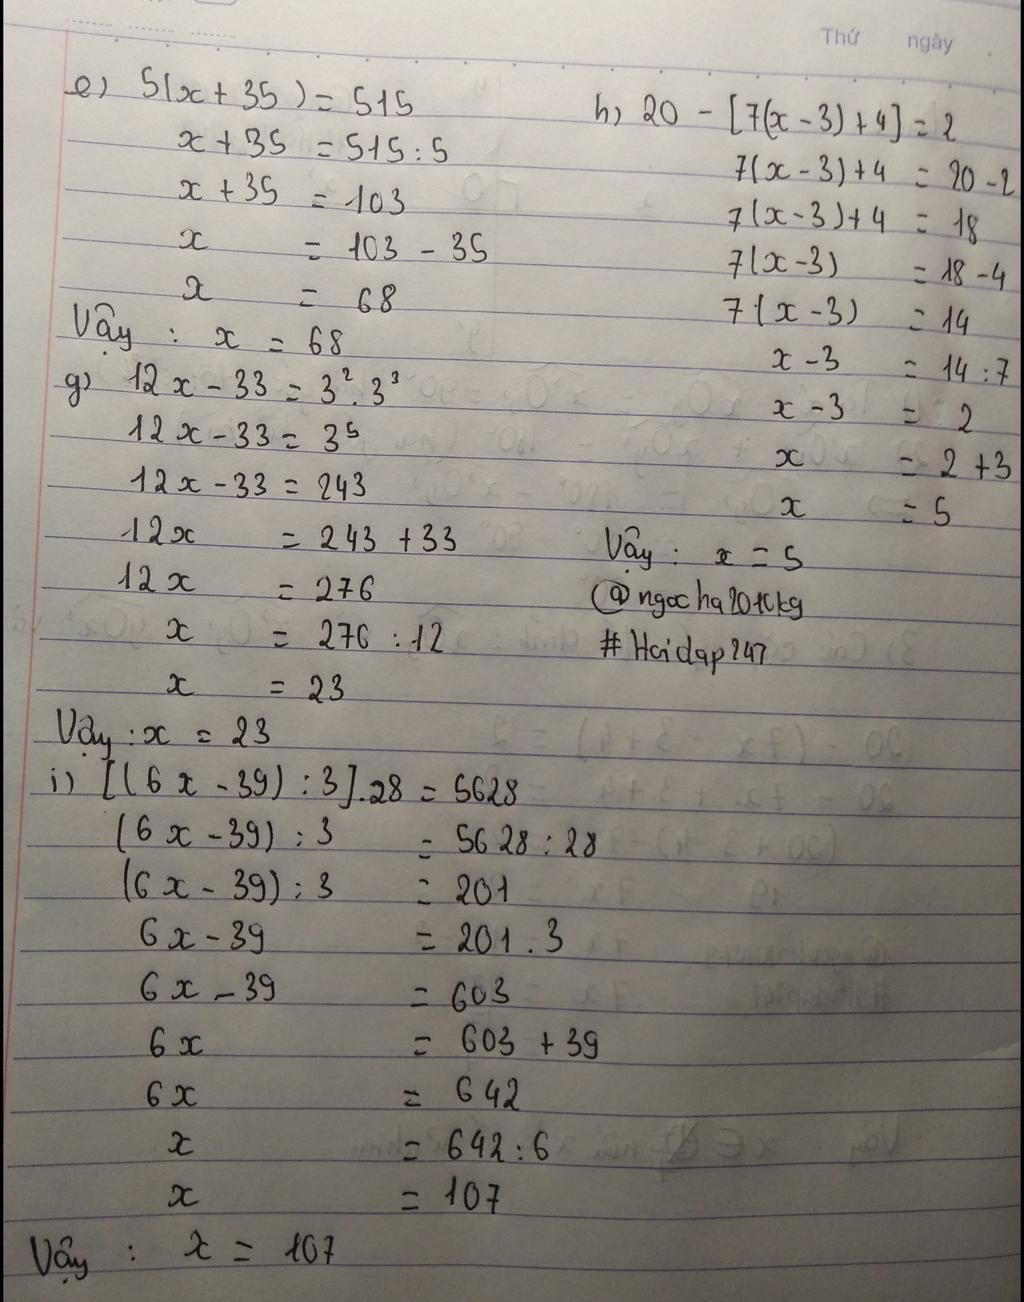 Thứ ngày
e) 5(x + 35) = 515
x + 35 = 515 : 5
x + 35 = 103
x = 103 - 35
x = 68
Vậy : x = 68
g) 12x - 33 = 3² . 3³
12x - 33 = 3⁵
12x - 33 = 243
12x = 243 + 33
12x = 276
x = 276 : 12
x = 23
Vậy : x = 23
h) 20 - [7(x - 3) + 4] = 2
7(x - 3) + 4 = 20 - 2
7(x - 3) + 4 = 18
7(x - 3) = 18 - 4
7(x - 3) = 14
x - 3 = 14 : 7
x - 3 = 2
x = 2 + 3
x = 5
Vậy : x = 5
#Hoidap247
i) [(6x - 39) : 3] . 28 = 5628
(6x - 39) : 3 = 5628 : 28
(6x - 39) : 3 = 201
6x - 39 = 201 . 3
6x - 39 = 603
6x = 603 + 39
6x = 642
x = 642 : 6
x = 107
Vậy : x = 107